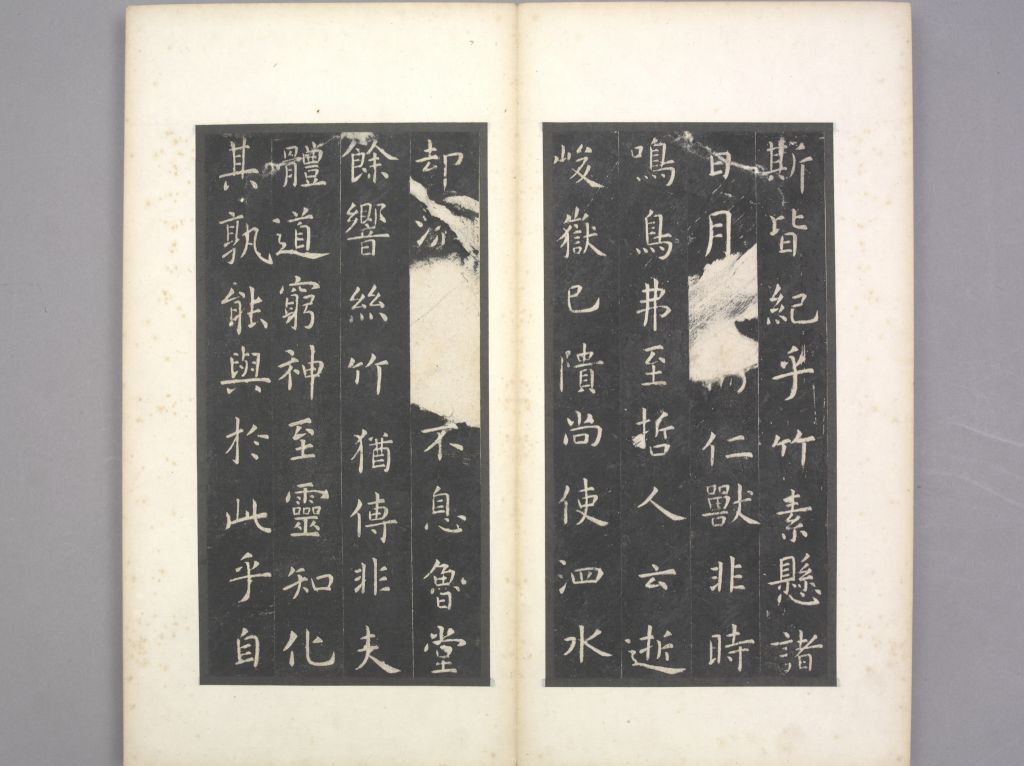 斯皆紀乎竹素懸諸
日月仁獸非時
鳴鳥弗至哲人云逝
峻嶽已隤尚使泗水
却不息魯堂
餘響絲竹猶傳非夫
體道窮神至靈知化
其孰能與於此乎自